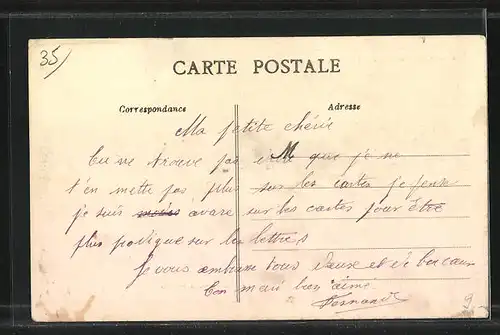 35)
CARTE POSTALE
Correspondance
Adresse
Ma petite chérie
tu ne trouve pas que je ne
t'en mette pas plus sur les cartes je pense
je suis avare sur les cartes pour être
plus sur les lettres
Je vous embrasse tous deux et
ton mari bien aimé
Fernand
9